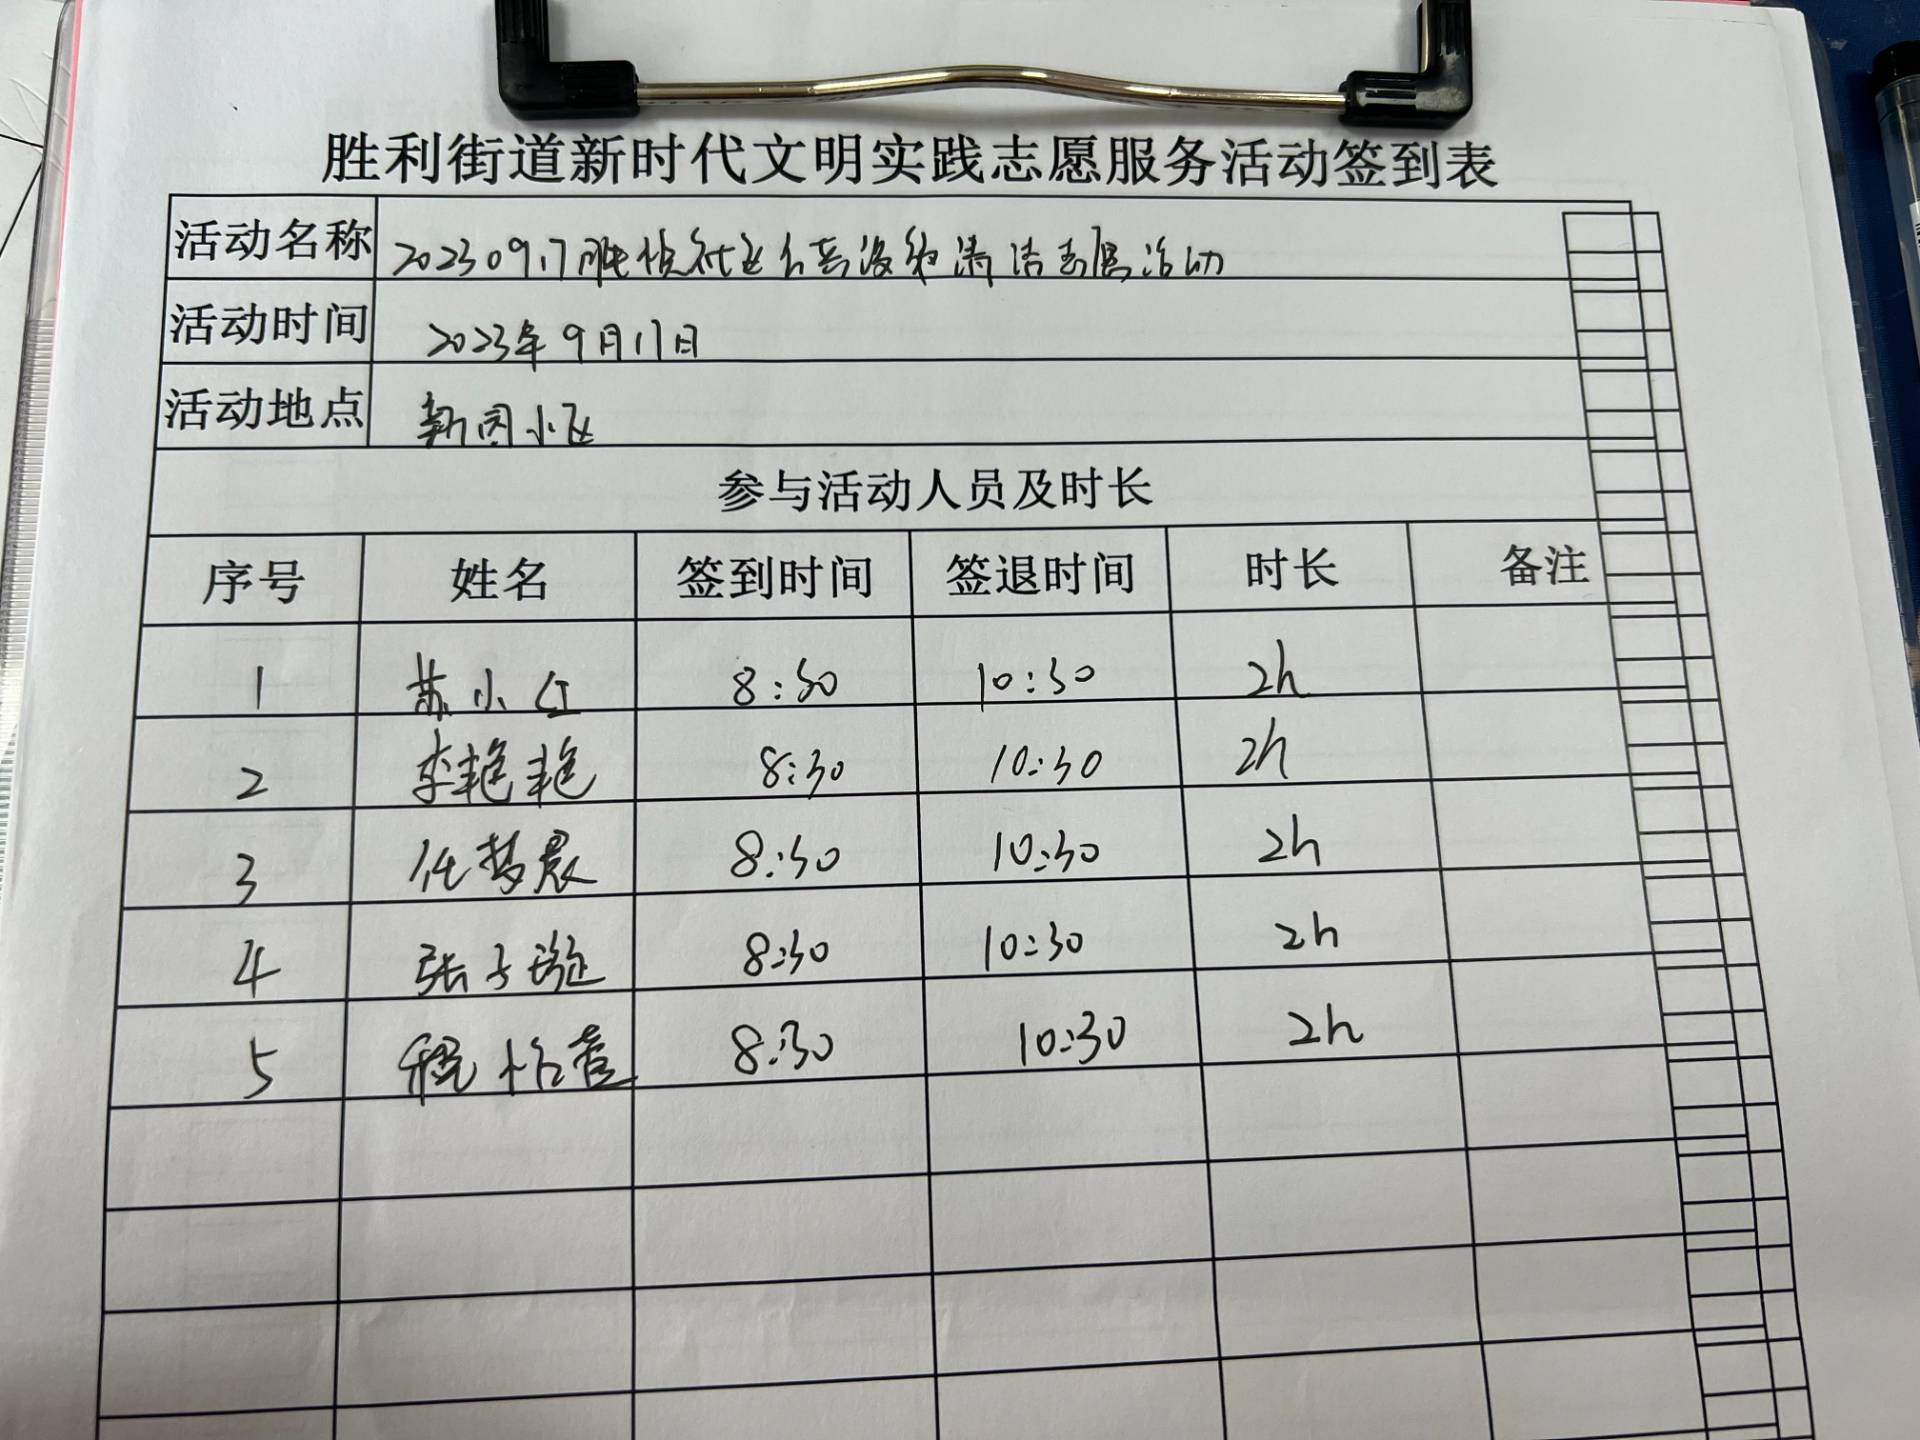 胜利街道新时代文明实践志愿服务活动签到表
活动名称 20230917胜悦社区公共设施清洁志愿活动
活动时间 2023年9月17日
活动地点 新园小区
参与活动人员及时长
序号 姓名 签到时间 签退时间 时长 备注
1 苏小红 8:30 10:30 2h
2 李艳艳 8:30 10:30 2h
3 任梦晨 8:30 10:30 2h
4 张子璇 8:30 10:30 2h
5 程怡萱 8:30 10:30 2h